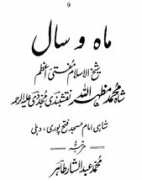 9
ماہ و سال
شیخ الاسلام مفتی اعظم
شاہ محمد مظہر اللہ نقشبندی مجددی علیہ الرحمہ
شاہی امام مسجد فتح پوری، دہلی
مرتبہ
محمد عبدالستار طاہر